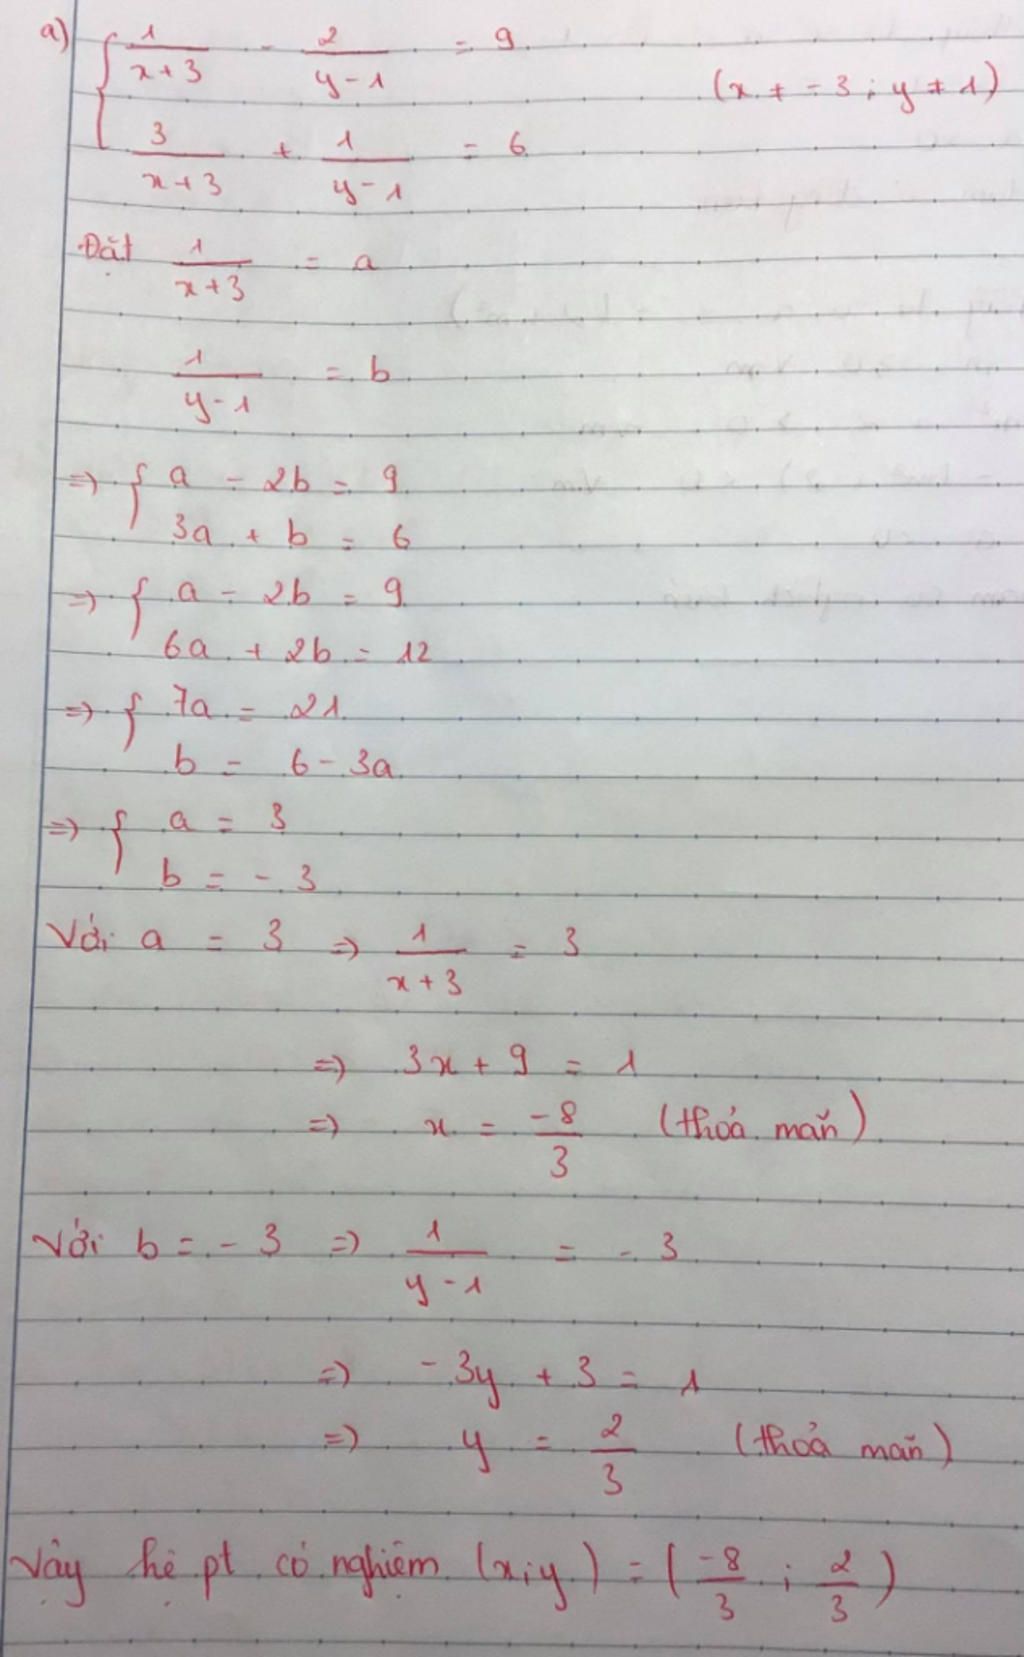 a) { 1/(x+3) - 2/(y-1) = 9 (x ≠ -3; y ≠ 1)
3/(x+3) + 1/(y-1) = 6
Đặt 1/(x+3) = a
1/(y-1) = b
=> { a - 2b = 9
3a + b = 6
=> { a - 2b = 9
6a + 2b = 12
=> { 7a = 21
b = 6 - 3a
=> { a = 3
b = - 3
Với a = 3 => 1/(x+3) = 3
=> 3x + 9 = 1
=> x = -8/3 (thoả mãn)
Với b = - 3 => 1/(y-1) = - 3
=> -3y + 3 = 1
=> y = 2/3 (thoả mãn)
Vậy hệ pt có nghiệm (x;y) = (-8/3 ; 2/3)